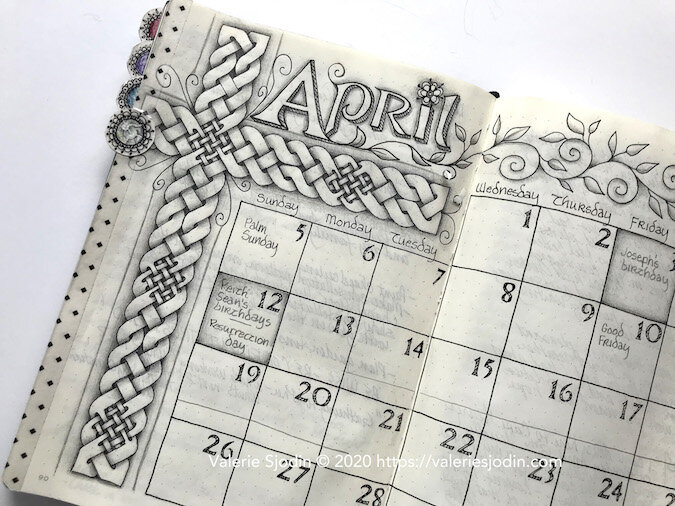 April
Sunday Monday Tuesday Wednesday Thursday Friday
1 2 3
Joseph's
birthday
5 6 7 8 9 10
Palm
Sunday
Good
Friday
12 13 14 15 16 17
Sean's
birthdays
Resurrection
day
19 20 21 22 23 24
26 27 28
Valerie Sjodin © 2020 https://valeriesjodin.com
90